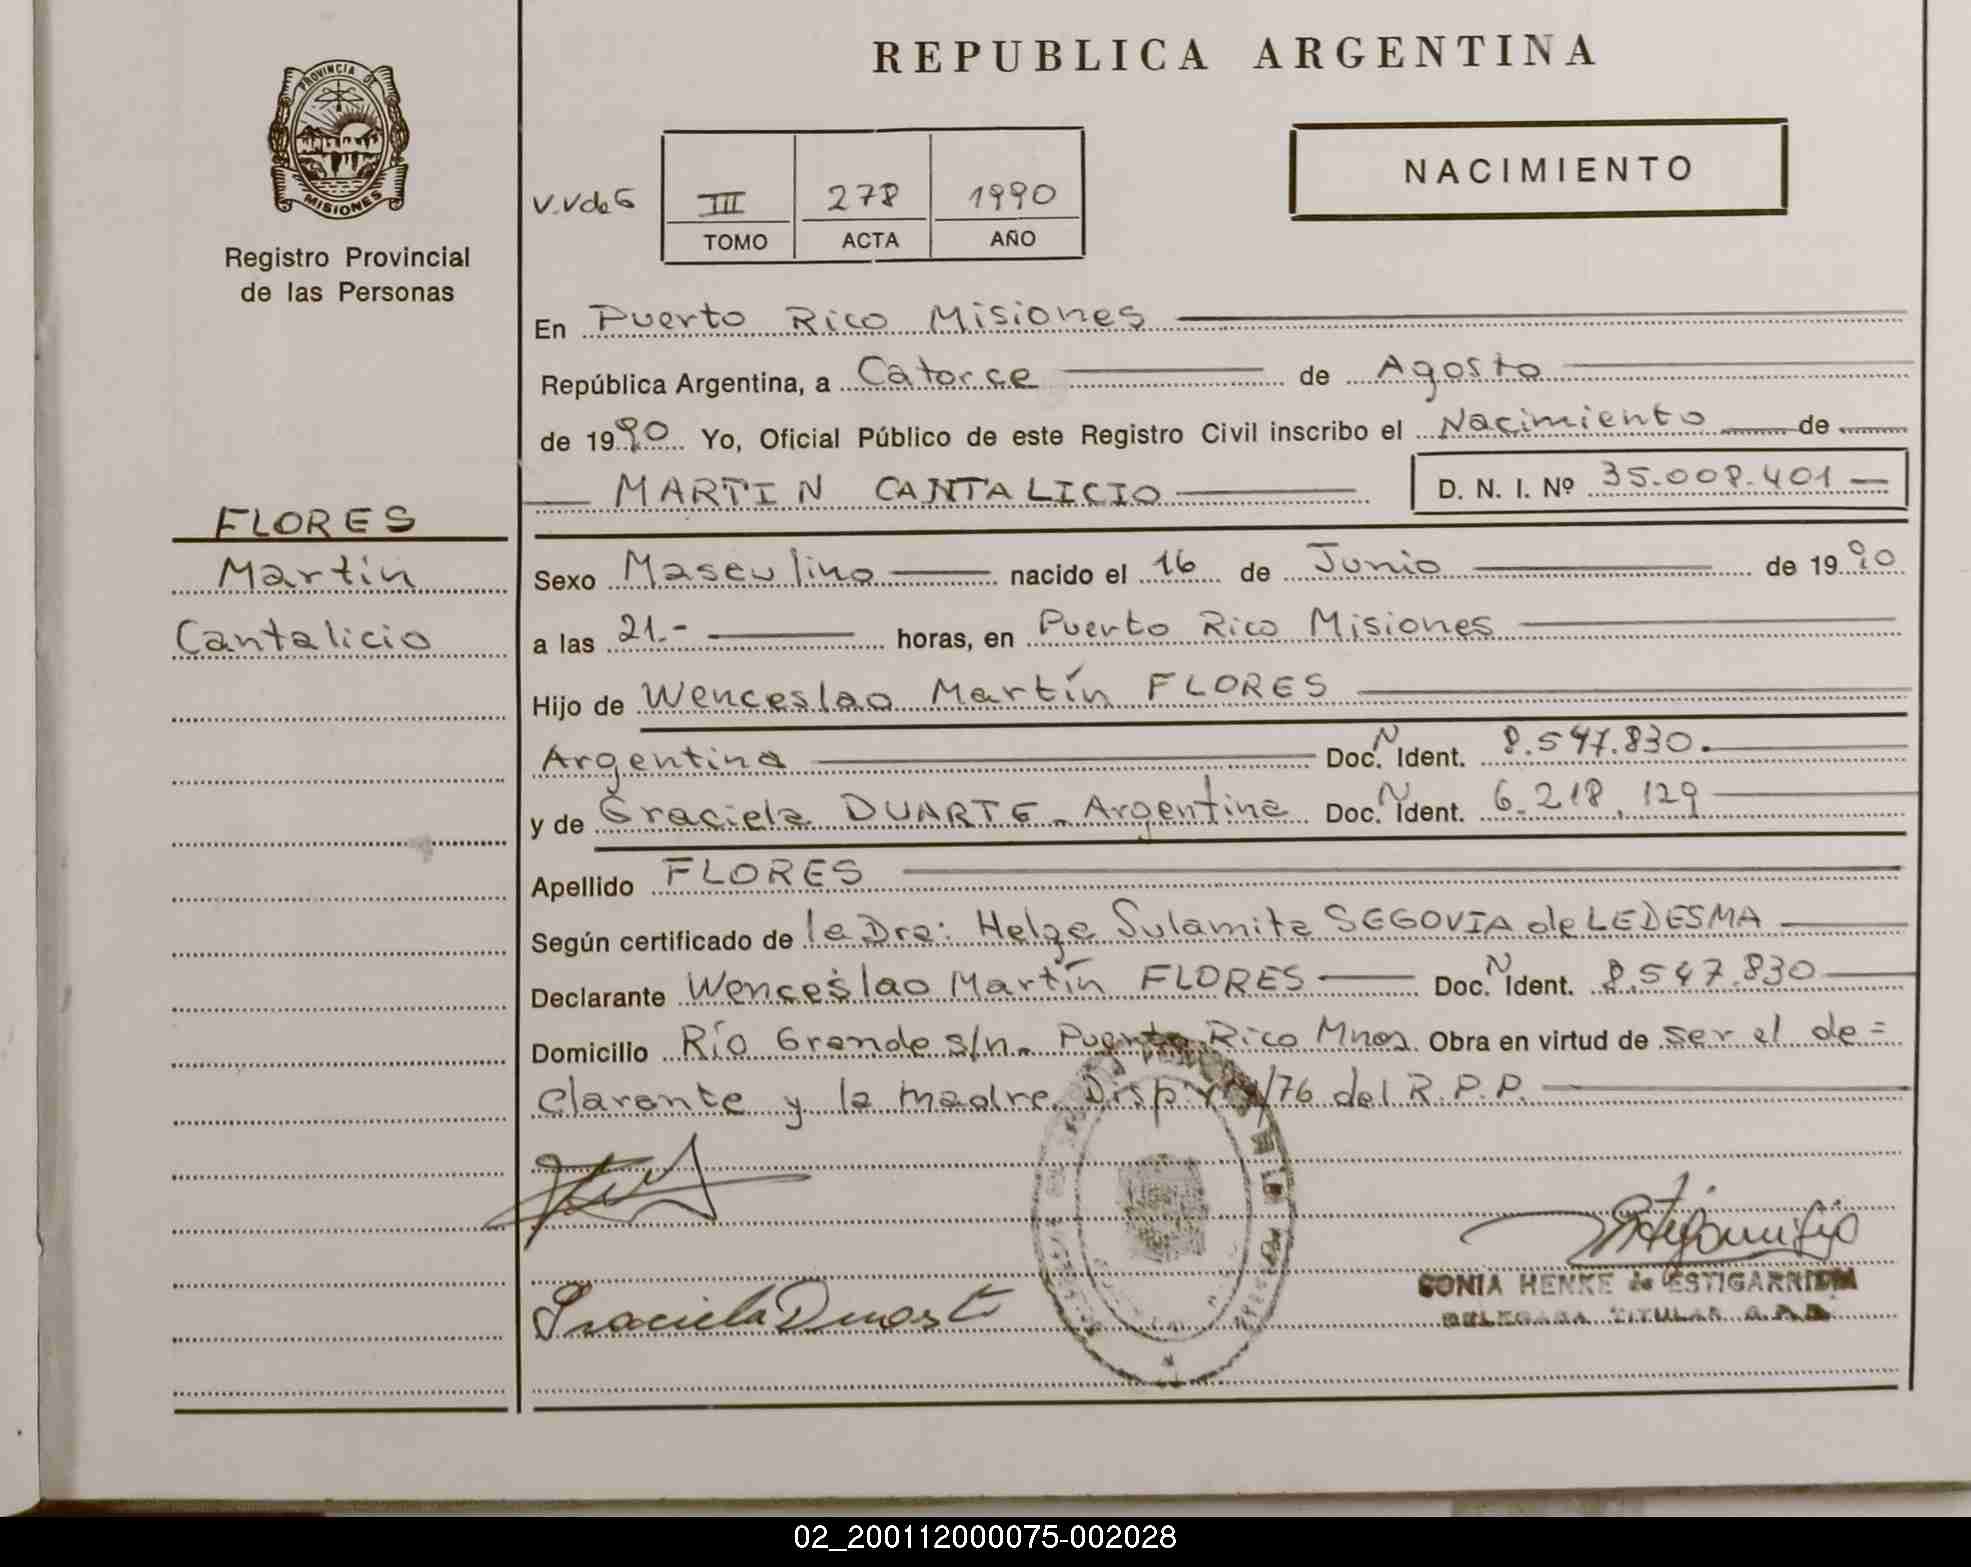 REPUBLICA ARGENTINA
PROVINCIA DE
MISIONES
Registro Provincial
de las Personas
NACIMIENTO
V.VdeG
III 278 1990
TOMO ACTA AÑO
En Puerto Rico Misiones
República Argentina, a Catorce de Agosto
de 1990 Yo, Oficial Público de este Registro Civil inscribo el Nacimiento de
MARTIN CANTALICIO D. N. I. Nº 35.008.401
FLORES
Martín
Cantalicio
Sexo Masculino nacido el 16 de Junio de 1990
a las 21.- horas, en Puerto Rico Misiones
Hijo de Wenceslao Martín FLORES
Argentina Doc. N Ident. 8.547.830.
y de Graciela DUARTE - Argentina Doc. N Ident. 6.218.129
Apellido FLORES
Según certificado de la Dra: Helga Sulamita SEGOVIA de LEDESMA
Declarante Wenceslao Martín FLORES Doc. N Ident. 8.547.830
Domicilio Río Grande s/n. Puerto Rico Mnes. Obra en virtud de ser el de=
clarante y la madre. Disp. /76 del R.P.P.
Graciela Duarte
SONIA HENKE de ESTIGARRIBIA
DELEGADA TITULAR
02_200112000075-002028